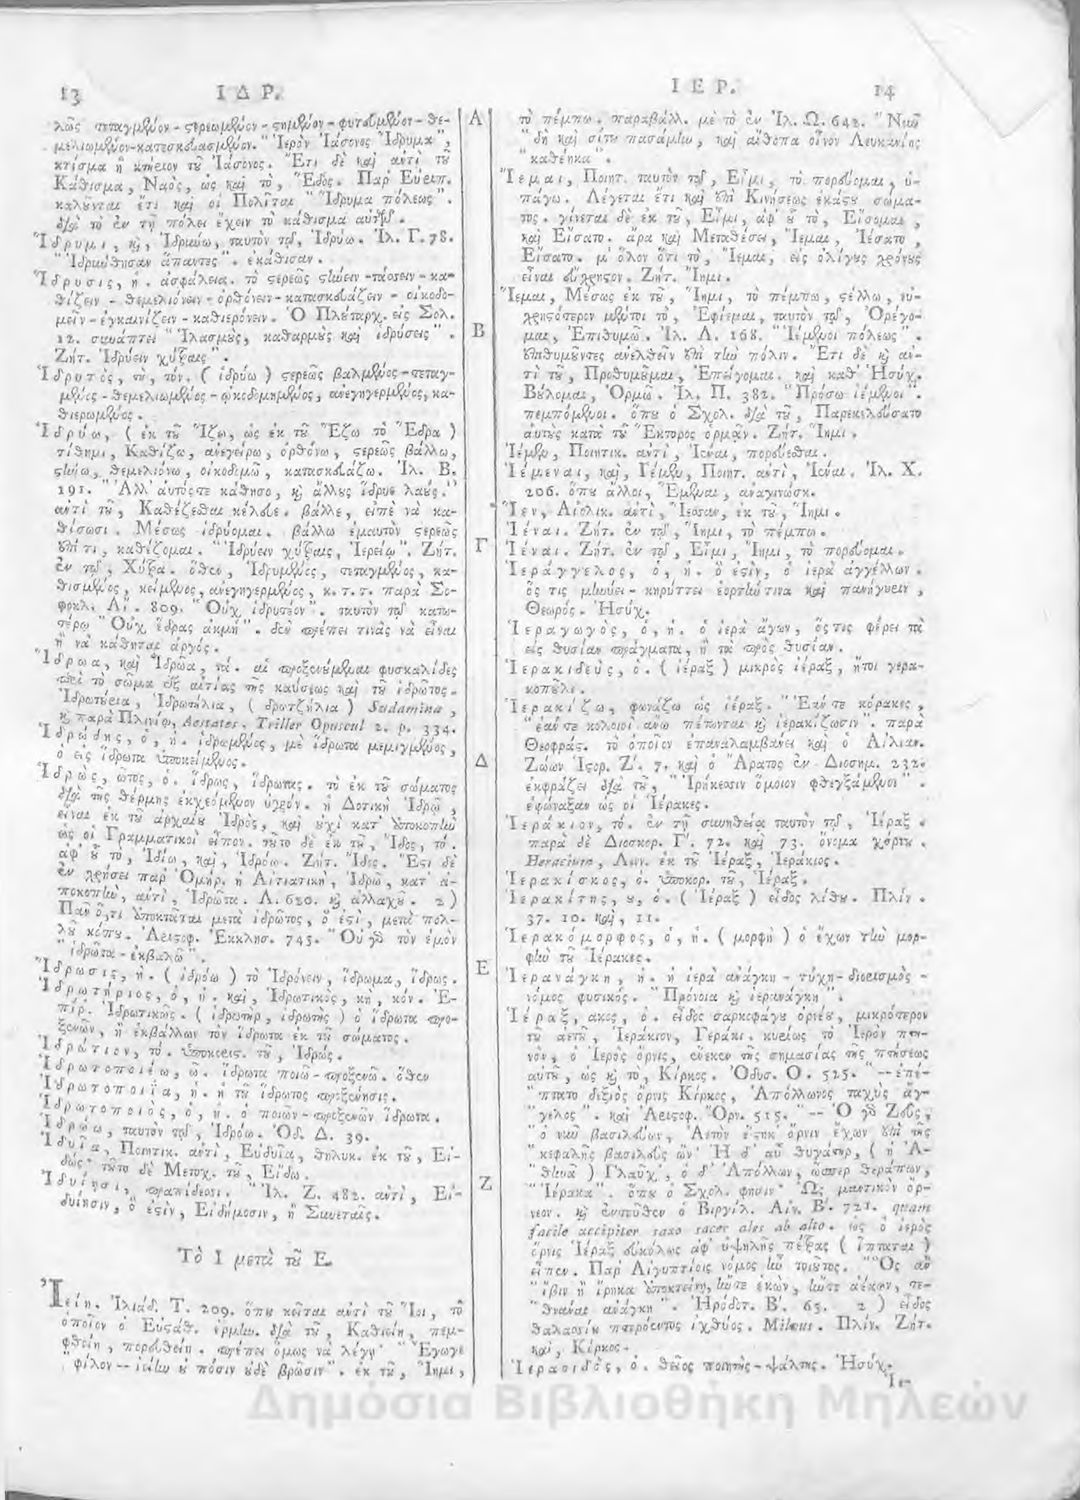 13 ΙΔΡ.
λῶς τεταγμένον - στερεωμένον - στημένον - φυτευμένον - θε-
μελιωμένον - κατεσκευασμένον. "Ἱερὸν Ἰάσονος Ἵδρυμα",
κτίσμα ἢ κτήριον τοῦ Ἰάσονος. Ἔτι δὲ καὶ αντὶ τοῦ
Κάθισμα, Ναὸς, ὡς καὶ τὸ, Ἕδος. Παρ Εὐριπ.
καλοῦνται ἔτι καὶ οἱ Πολῖται "Ἵδρυμα πόλεως".
διὰ τὸ ἐν τῇ πόλει ἔχειν τὸ κάθισμα αὐτῶν.
Ἵδρυμι, καὶ, Ἱδρύω, ταυτὸν τῷ, Ἱδρύω. Ἰλ. Γ. 78.
"Ἱδρύθησαν ἅπαντες". ἐκάθισαν.
Ἵδρυσις, ἡ. ἀσφάλεια. τὸ στερεῶς στήνειν - τάσσειν - κα-
θίζειν - θεμελιόνειν - ὀρθόνειν - κατασκευάζειν - οἰκοδο-
μεῖν - ἐγκαινίζειν - καθιερόνειν. Ὁ Πλούταρχ. εἰς Σολ.
12. συνάπτει "Ἱλασμοὺς, καθαρμοὺς καὶ ἱδρύσεις".
Ζήτ. Ἱδρύειν χύτραις".
Ἱδρυτὸς, τὴ, τόν. (ἱδρύω) στερεῶς βαλμένος - τεταγ-
μένος - θεμελιωμένος - ᾠκοδομημένος, ἀνεγηγερμένος, κα-
θιερωμένος.
Ἱδρύω, (ἐκ τοῦ Ἵζω, ὡς ἐκ τοῦ Ἕζω τὸ Ἕδρα)
τίθημι, Καθίζω, ἀνεγείρω, ὀρθόνω, στερεῶς βάλλω,
στήνω, θεμελιόνω, οἰκοδομῶ, κατασκευάζω. Ἰλ. Β.
191. "Ἀλλ' αὐτός τε κάθησο, καὶ ἄλλους ἵδρυε λαούς."
αντὶ τοῦ, Καθέζεσθαι κέλευε. βάλλε, εἰπὲ νὰ κα-
θίσωσι. Μέσως ἱδρύομαι. βάλλω ἐμαυτὸν στερεῶς
ἐπί τι, καθέζομαι. "Ἱδρύειν χύτραις, Ἱερείῳ. Ζήτ.
ἐν τῷ, Χύτρα. ὅθεν, Ἱδρυμένος, τεταγμένος, κα-
θισμένος, κείμενος, ἀνεγηγερμένος, κ. τ. τ. παρὰ Σο-
φοκλ. Αἴ. 809. "Οὐχ ἱδρυτέον". ταυτὸν τῷ κατω-
τέρω "Οὐχ ἕδρας ἀκμή". δεν πρέπει τινὰς νὰ εἶναι
ἢ νὰ κάθηται ἀργός.
Ἵδρωα, καὶ Ἱδρῶα, τά. αἱ προξενούμεναι φυσκαλίδες
περὶ τὸ σῶμα ἐξ αἰτίας τῆς καύσεως καὶ τοῦ ἱδρῶτος.
Ἱδρωτούρια, Ἱδρωτήλια, (δρωτζήλια) Sudamina,
καὶ παρὰ Πλινίῳ, Aestates. Triller Opuscul 2. p. 334.
Ἱδρώδης, ὁ, ἡ. ἱδρωμένος, μὲ ἵδρωτα μεμιγμένος,
ὁ εἰς ἵδρωτα ὑποκείμενος.
Ἱδρὼς, ῶτος, ὁ. ἵδρως, ἵδρωτας. τὸ ἐκ τοῦ σώματος
διὰ τῆς θέρμης ἐκχεόμενον ὑγρόν. ἡ Δοτικὴ Ἱδρῷ,
εἶναι ἐκ τοῦ ἀρχαίου Ἱδρὸς, καὶ οὐχὶ κατ' ὑποκοπὴν
ὡς οἱ Γραμματικοὶ εἶπον. τοῦτο δὲ ἐκ τοῦ, Ἶδος, τό.
ἀφ' οὗ τὸ, Ἰδίω, καὶ, Ἱδρόω. Ζήτ. Ἶδος. Ἔτι δὲ
ἐν χρήσει παρ' Ὁμήρ. ἡ Αἰτιατικὴ, Ἱδρῶ, κατ' ἀ-
ποκοπὴν, αντὶ, Ἱδρῶτα. Λ. 620. καὶ ἀλλαχοῦ. 2)
Πᾶν ὅ,τι ἀποκτᾶται μετὰ ἱδρῶτος, ὅ ἐστὶ, μετὰ πολ-
λοῦ κόπου. Ἀριστοφ. Ἐκκλησ. 745. "Οὐ γὰρ τὸν ἐμὸν
"ἱδρῶτα - ἐκβαλῶ".
Ἵδρωσις, ἡ. (ἱδρόω) τὸ Ἱδρόνειν, ἵδρωμα, ἵδρως.
Ἱδρωτήριος, ὁ, ἡ. καὶ, Ἱδρωτικὸς, κὴ, κόν. Ἐ-
πίρ. Ἱδρωτικῶς. (ἱδρωτὴρ, ἱδρωτὴς) ὁ ἵδρωτα προ-
ξενῶν, ἢ ἐκβάλλων τὸν ἵδρωτα ἐκ τοῦ σώματος.
Ἱδρώτιον, τό. ὑποκορις. τοῦ, Ἱδρώς.
Ἱδρωτοποιέω, ῶ. ἵδρωτα ποιῶ - προξενῶ. ὅθεν
Ἱδρωτοποιΐα, ἡ. ἡ τοῦ ἵδρωτος προξένησις.
Ἱδρωτοποιὸς, ὁ, ἡ. ὁ ποιῶν - προξενῶν ἵδρωτα.
Ἱδρώω, ταυτὸν τῷ, Ἱδρόω. Ὀδ. Δ. 39.
Ἰδυῖα, Ποιητικ. αντὶ, Εἰδυῖα, θηλυκ. ἐκ τοῦ, Εἰ-
δὼς. τοῦτο δὲ Μετοχ. τοῦ, Εἴδω.
Ἰδυίῃσι, πραπίδεσσι. "Ἰλ. Ζ. 482. αντὶ, Εἰ-
δυίῃσιν, ὅ ἐστὶν, Εἰδήμοσιν, ἢ Συνεταῖς.
Τὸ Ι μετὰ τοῦ Ε.
Ἰείη. Ἰλιάδ. Τ. 209. ὅπου κεῖται αντὶ τοῦ Ἴοι, τὸ
ὁποῖον ὁ Εὐστάθ. ἑρμην. διὰ τοῦ, Καθιείη, πεμ-
φθείη, πορευθείη. πρέπει ὅμως νὰ λέγῃ "Ἔγωγε
φίλον -- ἰείην οὐ πόσιν οὐδὲ βρῶσιν". ἐκ τοῦ, Ἵημι,
Α
Β
Γ
Δ
Ε
Ζ
ΙΕΡ. 14
τὸ πέμπω. παραβάλλ. μὲ τὸ ἐν Ἰλ. Ω. 642. "Νῦν
"δὴ καὶ σίτου πασάμην, καὶ αἴθοπα οἶνον Λευκανίης
"καθέηκα".
Ἵεμαι, Ποιητ. ταυτὸν τῷ, Εἶμι, τὸ πορεύομαι, ὑ-
πάγω. Λέγεται ἔτι καὶ ἐπὶ Κινήσεως ἑκάστου σώμα-
τος. γίνεται δὲ ἐκ τοῦ, Εἶμι, ἀφ' οὗ τὸ, Εἴσομαι,
καὶ Εἴσατο. ἄρα καὶ Μεταθέσει, Ἵεμαι, Ἰέσατο,
Εἴσατο. μ' ὅλον ὅτι τὸ, Ἵεμαι, εἰς ὀλίγους χρόνους
εἶναι εὔχρηστον. Ζήτ. Ἵημι.
Ἵεμαι, Μέσως ἐκ τοῦ, Ἵημι, τὸ πέμπω, στέλλω, εὐ-
χρηστότερον μέντοι τὸ, Ἐφίεμαι, ταυτὸν τῷ, Ὀρέγο-
μαι, Ἐπιθυμῶ. Ἰλ. Λ. 168. "Ἱέμενοι πόλεως".
ἐπιθυμοῦντες ἀνελθεῖν ἐπὶ τὴν πόλιν. Ἔτι δὲ καὶ αν-
τὶ τοῦ, Προθυμοῦμαι, Ἐπείγομαι. καὶ καθ' Ἡσύχ.
Βούλομαι, Ὁρμῶ. Ἰλ. Π. 382. "Πρόσω ἱέμενοι".
πεμπόμενοι. ὅπου ὁ Σχολ. διὰ τοῦ, Παρεκελεύσατο
αὐτοὺς κατὰ τοῦ Ἕκτορος ὁρμᾶν. Ζήτ. Ἵημι.
Ἰέμεν, Ποιητικ. αντὶ, Ἰέναι, πορεύεσθαι.
Ἰέμεναι, καὶ, Ἰέμεν, Ποιητ. αντὶ, Ἰέναι. Ἰλ. Χ.
206. ὅπου ἄλλοι, Ἔμεναι, ἀναγινώσκ.
Ἵεν, Αἰολικ. αντὶ, Ἵεσαν, ἐκ τοῦ, Ἵημι.
Ἱέναι. Ζήτ. ἐν τῷ, Ἵημι, τὸ πέμπω.
Ἰέναι. Ζήτ. ἐν τῷ, Εἶμι, Ἴημι, τὸ πορεύομαι.
Ἱεράγγελος, ὁ, ἡ. ὅ ἐστὶν, ὁ ἱερὰ ἀγγέλλων.
ὅς τις μηνύει - κηρύττει ἑορτήν τινα καὶ πανήγυριν,
Θεωρός. Ἡσύχ.
Ἱεραγωγὸς, ὁ, ἡ. ὁ ἱερὰ ἄγων, ὅςτις φέρει τὰ
εἰς θυσίαν πράγματα, ἢ τὰ πρὸς θυσίαν.
Ἱερακιδεὺς, ὁ. (ἱέραξ) μικρὸς ἱέραξ, ἤτοι γερα-
κόπουλο.
Ἱερακίζω, φωνάζω ὡς ἱέραξ. "Ἐάν τε κόρακες,
"ἐάν τε κολοιοὶ ἄνω πέτονται καὶ ἱερακίζωσιν". παρὰ
Θεοφράς. τὸ ὁποῖον ἐπαναλαμβάνει καὶ ὁ Αἰλιαν.
Ζώων Ἱστορ. Ζ'. 7. καὶ ὁ Ἄρατος ἐν Διοσημ. 232.
ἐκφράζει διὰ τοῦ, "Ἰρήκεσσιν ὅμοιον φθεγξάμενοι".
ἐφώναξαν ὡς οἱ Ἱέρακες.
Ἱεράκιον, τό. ἐν τῇ συνηθείᾳ ταυτὸν τῷ, Ἱέραξ.
παρὰ δὲ Διοσκορ. Γ'. 72. καὶ 73. ὄνομα χόρτου.
Hieracium, Λατιν. ἐκ τοῦ Ἱέραξ, Ἱεράκιος.
Ἱερακίσκος, ὁ. ὑποκορ. τοῦ, Ἱέραξ.
Ἱερακίτης, ου, ὁ. (Ἱέραξ) εἶδος λίθου. Πλίν.
37. 10. καὶ, 11.
Ἱερακόμορφος, ὁ, ἡ. (μορφὴ) ὁ ἔχων τὴν μορ-
φὴν τοῦ Ἱέρακος.
Ἱερανάγκη, ἡ. ἡ ἱερὰ ἀνάγκη - τύχη - διορισμὸς -
νόμος φυσικός. "Πρόνοια καὶ ἱερανάγκη".
Ἱέραξ, ακος, ὁ. εἶδος σαρκοφάγου ὀρνέου, μικρότερον
τοῦ ἀετοῦ, Ἱεράκιον, Γεράκι. κυρίως τὸ Ἱερὸν πτη-
νὸν, ὁ Ἱερὸς ὄρνις, ἕνεκεν τῆς σημασίας τῆς πτήσεως
αὐτοῦ, ὡς καὶ τὸ, Κίρκος. Ὀδυσ. Ο. 525. "-- ἐπέ-
"πτατο δεξιὸς ὄρνις Κίρκος, Ἀπόλλωνος ταχὺς ἄγ-
"γελος". καὶ Ἀριστοφ. Ὄρν. 515. "-- Ὁ γὰρ Ζεὺς,
"ὁ νῦν βασιλεύων, Ἀετὸν ἕστηκ' ὄρνιν ἔχων ἐπὶ τῆς
"κεφαλῆς βασιλεὺς ὤν· Ἡ δ' αὖ θυγάτηρ, (ἡ Ἀ-
"θηνᾶ) Γλαῦχ', ὁ δ' Ἀπόλλων, ὥσπερ θεράπων,
"Ἱέρακα". ὅπου ὁ Σχολ. φησιν· Ὡς μαντικὸν ὄρ-
νεον. καὶ ἐντεῦθεν ὁ Βιργίλ. Αἰν. Β'. 721. quam
facile accipiter saxo sacer ales ab alto. ὡς ὁ ἱερὸς
ὄρνις Ἱέραξ εὐκόλως ἀφ' ὑψηλῆς πέτρας (ἵπταται)
εἶπεν. Παρ' Αἰγυπτίοις νόμος ἦν τοιοῦτος. "Ὃς ἂν
"ἴβιν ἢ ἴρηκα ἀποκτείνῃ, ἤντε ἑκὼν, ἤντε ἀέκων, τε-
"θνάναι ἀνάγκη". Ἡρόδοτ. Β'. 65. 2) εἶδος
θαλασσίου πτερόεντος ἰχθύος. Milvus. Πλίν. Ζήτ.
καὶ, Κίρκος.
Ἱεραοιδὸς, ὁ. θεῖος ποιητὴς - ψάλτης. Ἡσύχ.
Ἱε-
Δημόσια Βιβλιοθήκη Μηλεών